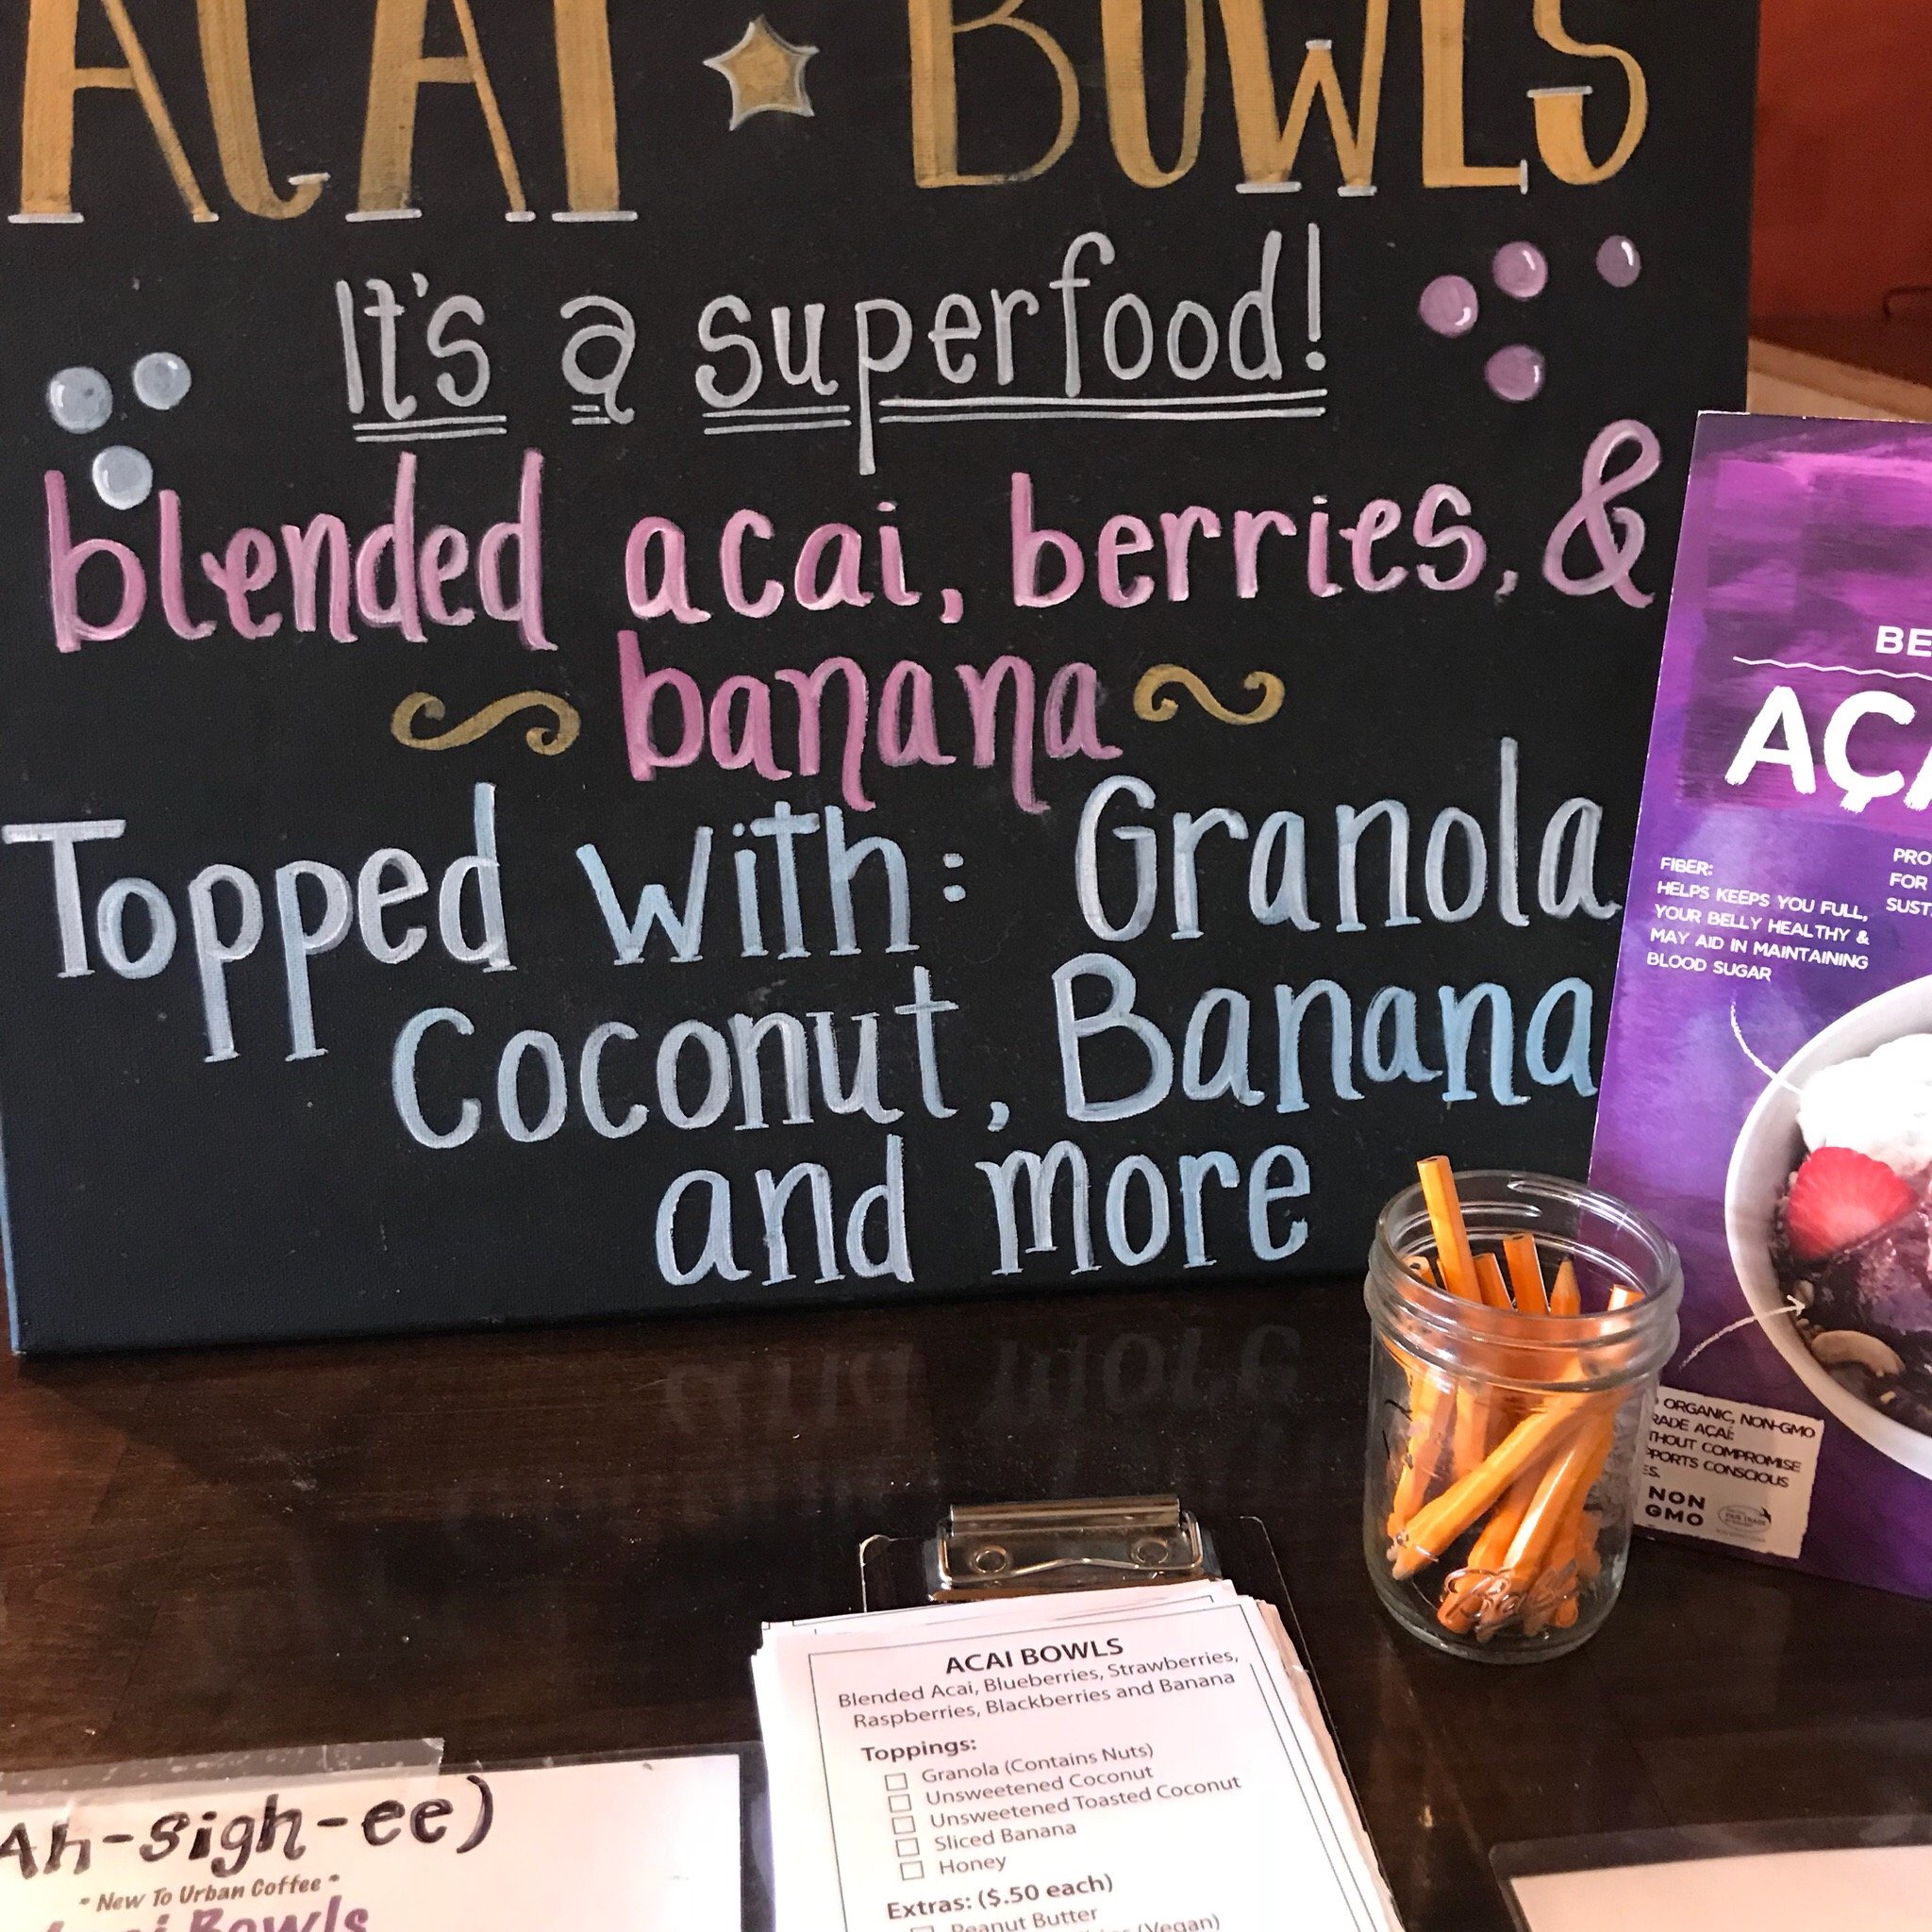 ACAI BOWLS
It's a superfood!
blended acai, berries, &
banana
Topped with: Granola
Coconut, Banana
and more
BE
AÇA
FIBER:
HELPS KEEPS YOU FULL,
YOUR BELLY HEALTHY &
MAY AID IN MAINTAINING
BLOOD SUGAR
PRO
FOR
SUST
ORGANIC, NON-GMO
RADE AÇAÍ:
THOUT COMPROMISE
PPORTS CONSCIOUS
ES.
NON
GMO
FAIR TRADE
Ball
ACAI BOWLS
Blended Acai, Blueberries, Strawberries,
Raspberries, Blackberries and Banana
Toppings:
Granola (Contains Nuts)
Unsweetened Coconut
Unsweetened Toasted Coconut
Sliced Banana
Honey
Extras: ($.50 each)
Peanut Butter
(Vegan)
Ah-sigh-ee)
"New To Urban Coffee"
Acai Bowls